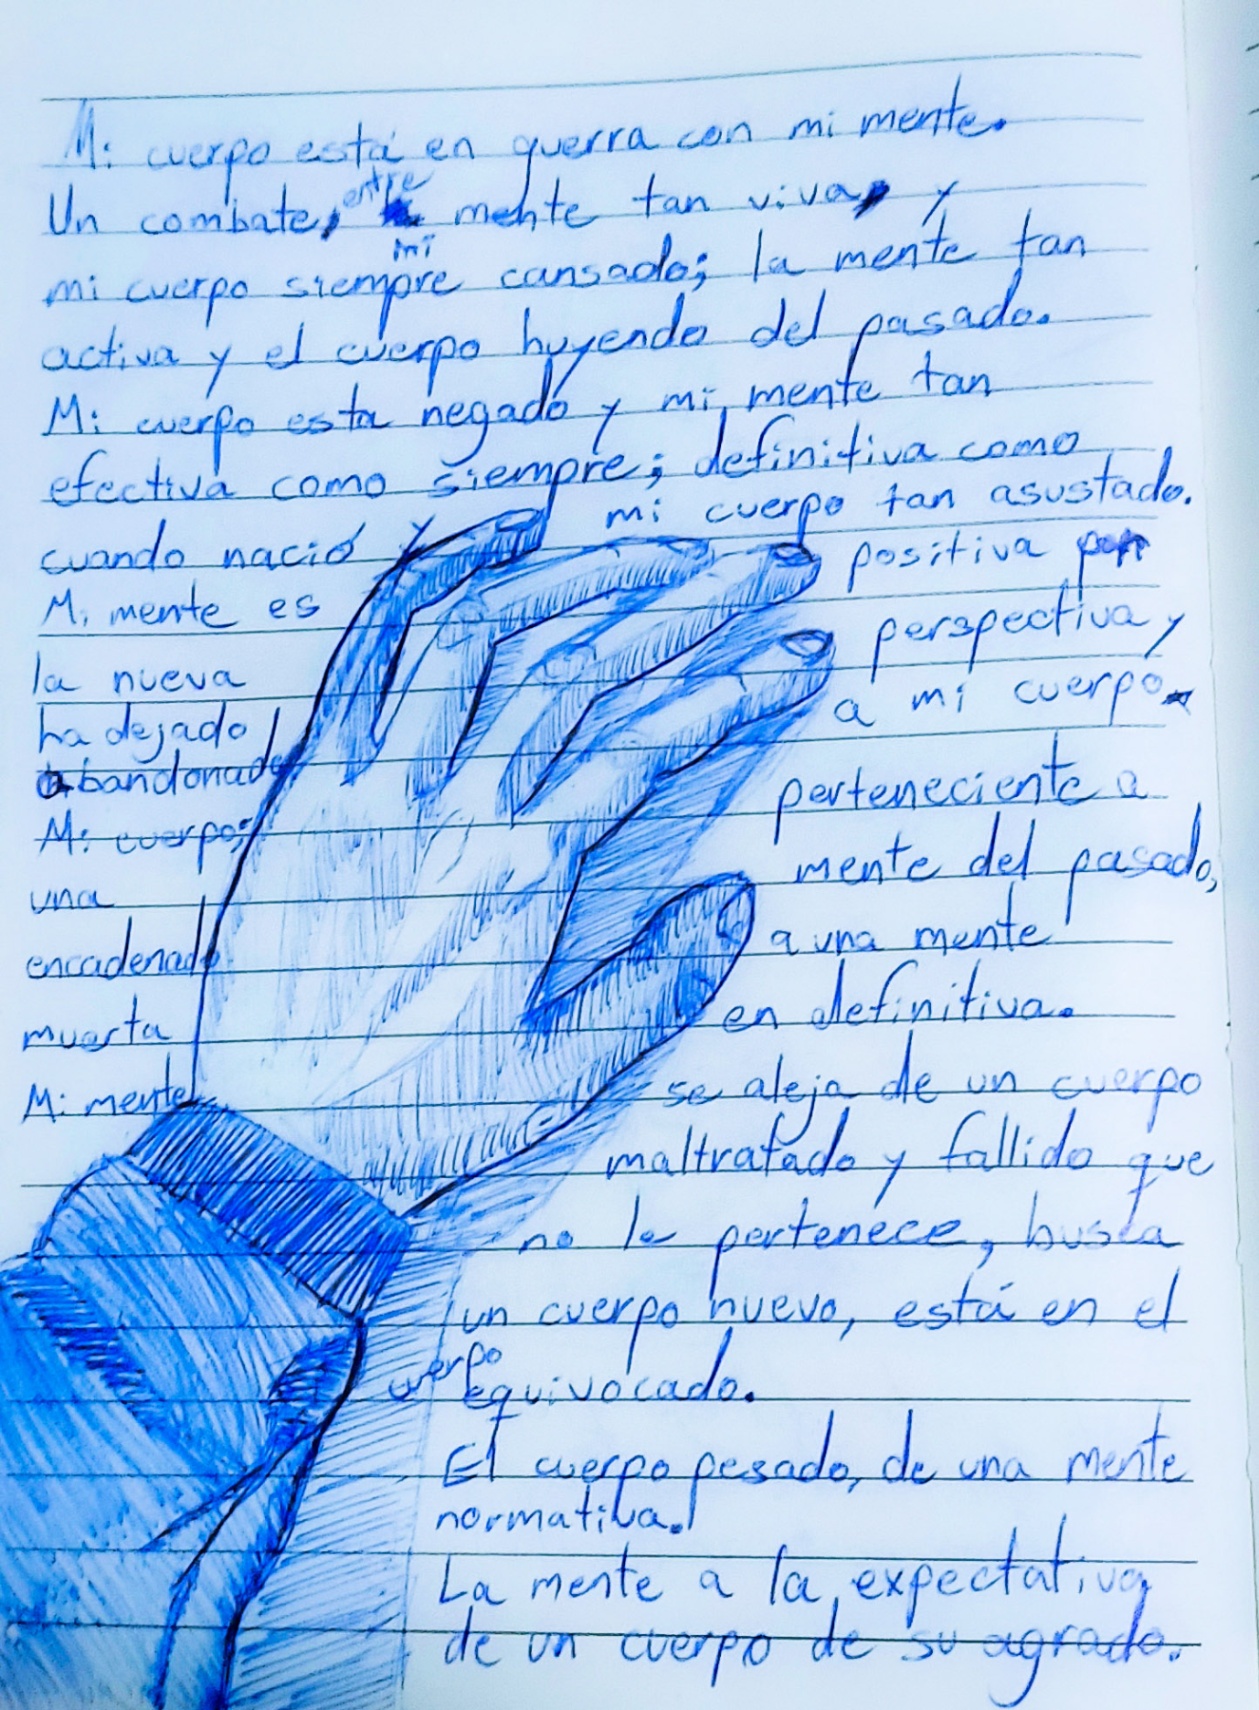 Mi cuerpo está en guerra con mi mente.
Un combate, entre mi mente tan viva, y
mi cuerpo siempre cansado; la mente tan
activa y el cuerpo huyendo del pasado.
Mi cuerpo esta negado y mi mente tan
efectiva como siempre; definitiva como
cuando nació y mi cuerpo tan asustado.
Mi mente es positiva
la nueva perspectiva y
ha dejado a mi cuerpo
abandonado
Mi cuerpo; perteneciente a
una mente del pasado,
encadenado a una mente
muerta en definitiva.
Mi mente se aleja de un cuerpo
maltratado y fallido que
no le pertenece, busca
un cuerpo nuevo, está en el
cuerpo equivocado.
El cuerpo pesado, de una mente
normativa.
La mente a la expectativa
de un cuerpo de su agrado.